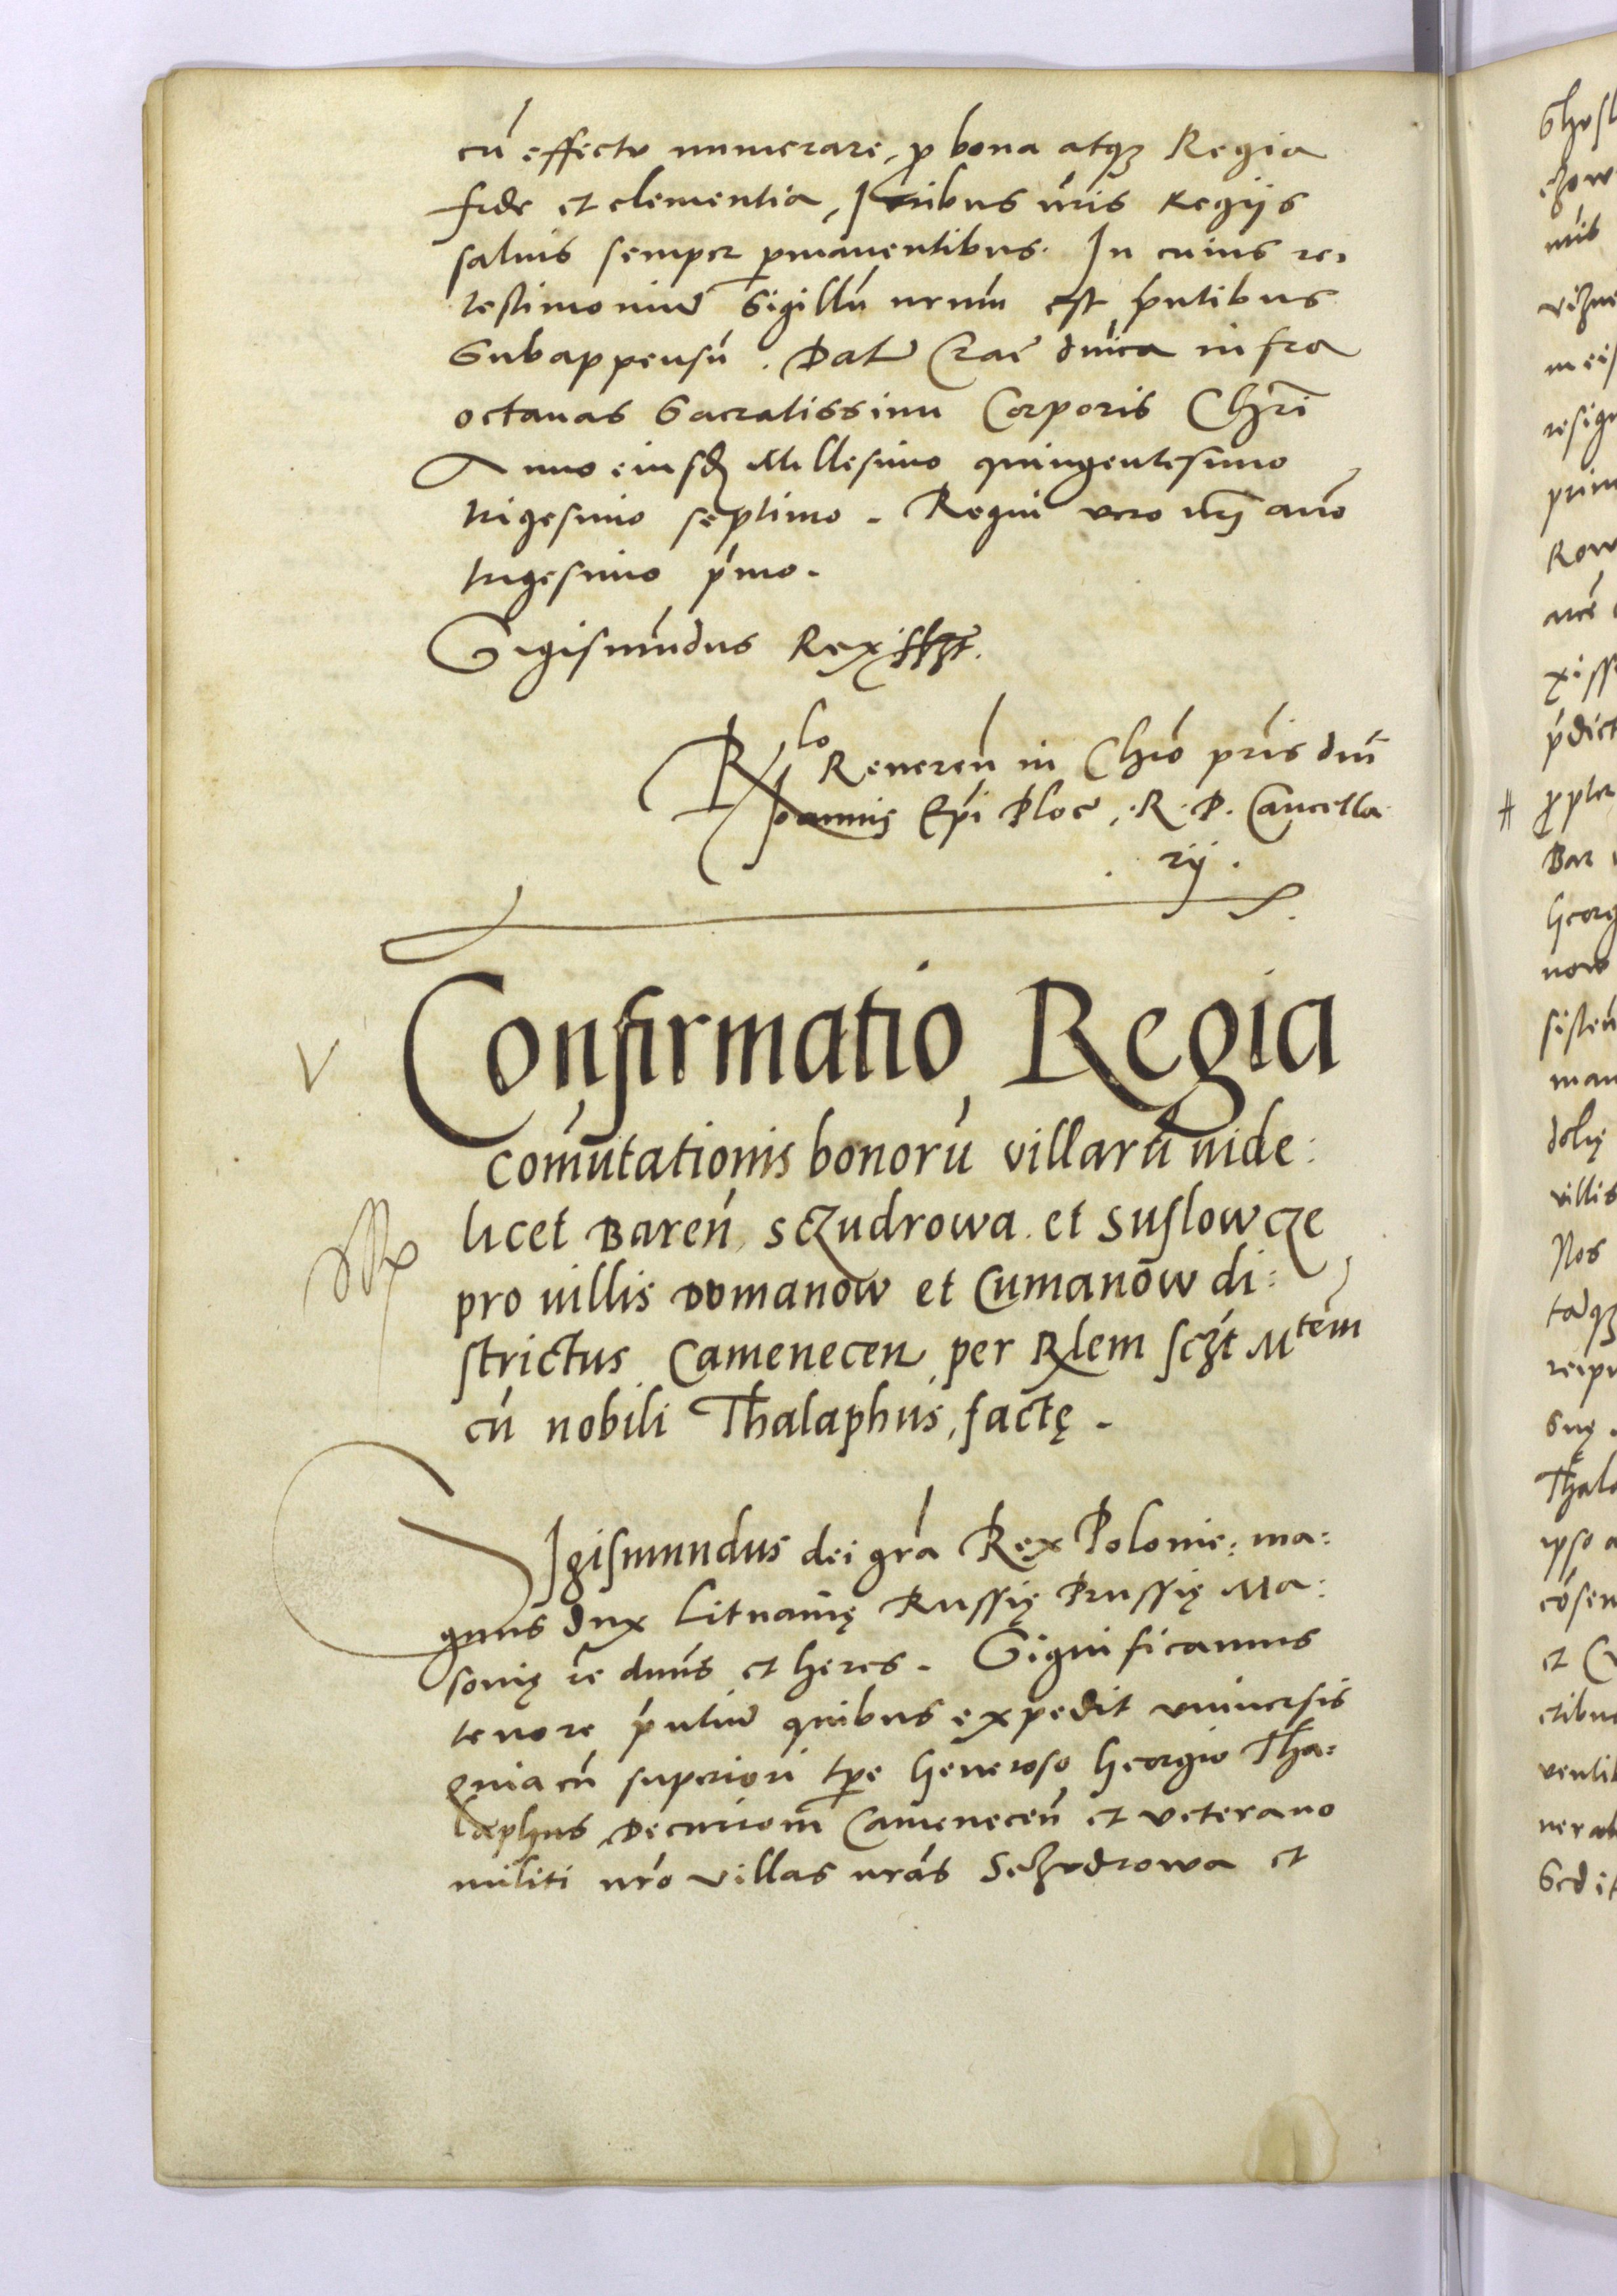 cū effectu numerare, p bona atqȝ Regia
fide et clementia, Iuribus nris Regijs
saluis semper pmanentibus. In cuius rei
testimoniū Sigillū nrum est pntibus
Subappensū. Datū Crac dnica infra
octauas Sacratissimi Corporis Chri
Anno eiusd Millesimo quingentesimo
trigesimo septimo. Regni vero nri anno
trigesimo pmo.
Sigismundus Rex sszt.
Rlo Reueren in Chro pris dni
Ioannis Epi Ploc, R. P. Cancella
rij.
Confirmatio Regia
comutationis bonorū villarū uide:
licet Baren, Sczudrowa et Suslowcze
pro uillis Domanow et Cumanow di:
strictus Camenecen per Rlem sczt Mtem
cū nobili Thalaphus, factę.
Sigismundus dei gra Rex Polonie: ma:
gnus dux Lituanię Russię Prussię Ma:
souię re dnus et heres. Significamus
tenore pntiū quibus expedit vniuersis
quia cū superiori tpe Generoso Georgio Tha:
laphus Decurioni Camenecen et veterano
militi nro villas nras Sczudrowa et